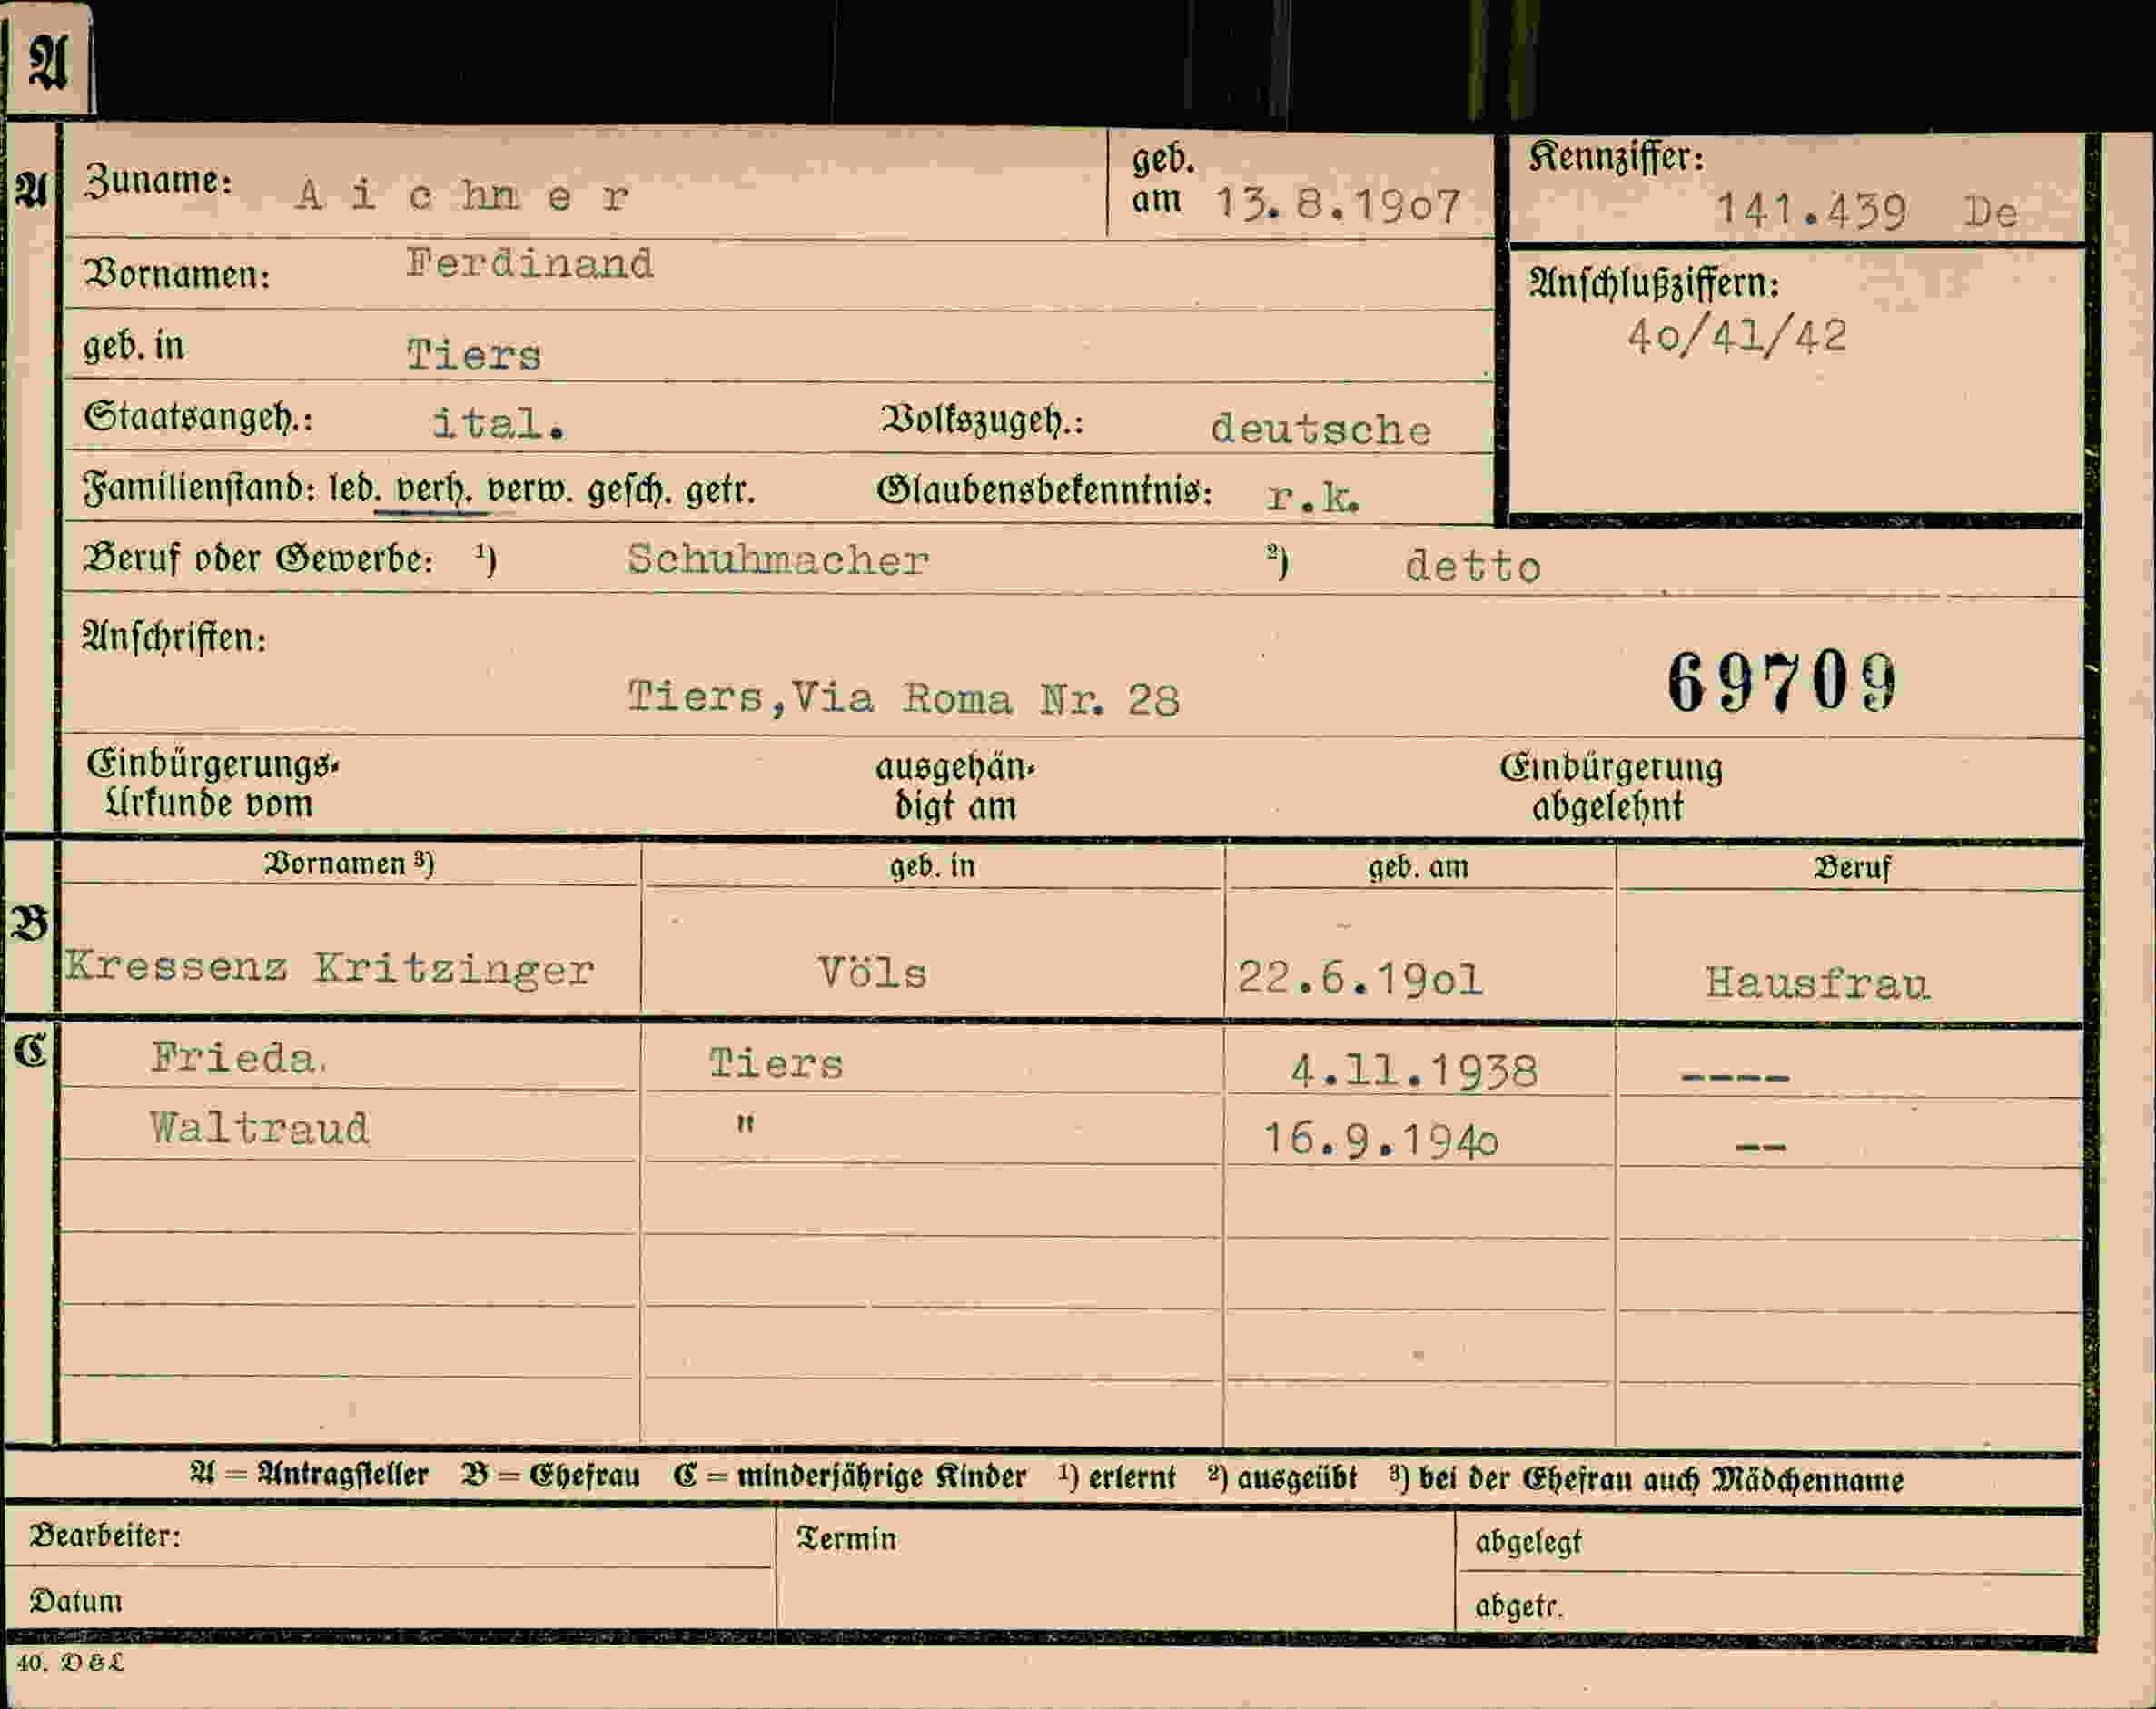 A
A Zuname: Aichner geb. am 13.8.19o7 Kennziffer: 141.439 De
Vornamen: Ferdinand
Anschlußziffern:
geb. in Tiers 4o/41/42
Staatsangeh.: ital. Volkszugeh.: deutsche
Familienstand: led. verh. verw. gesch. getr. Glaubensbekenntnis: r.k.
Beruf oder Gewerbe: 1) Schuhmacher 2) detto
Anschriften:
Tiers,Via Roma Nr. 28 69709
Einbürgerungs- ausgehän- Einbürgerung
Urkunde vom digt am abgelehnt
Vornamen 3) geb. in geb. am Beruf
B
Kressenz Kritzinger Völs 22.6.19o1 Hausfrau
C Frieda. Tiers 4.11.1938 ----
Waltraud " 16.9.194o --
A = Antragsteller B = Ehefrau C = minderjährige Kinder 1) erlernt 2) ausgeübt 3) bei der Ehefrau auch Mädchenname
Bearbeiter: Termin abgelegt
Datum abgetr.
40. D & L